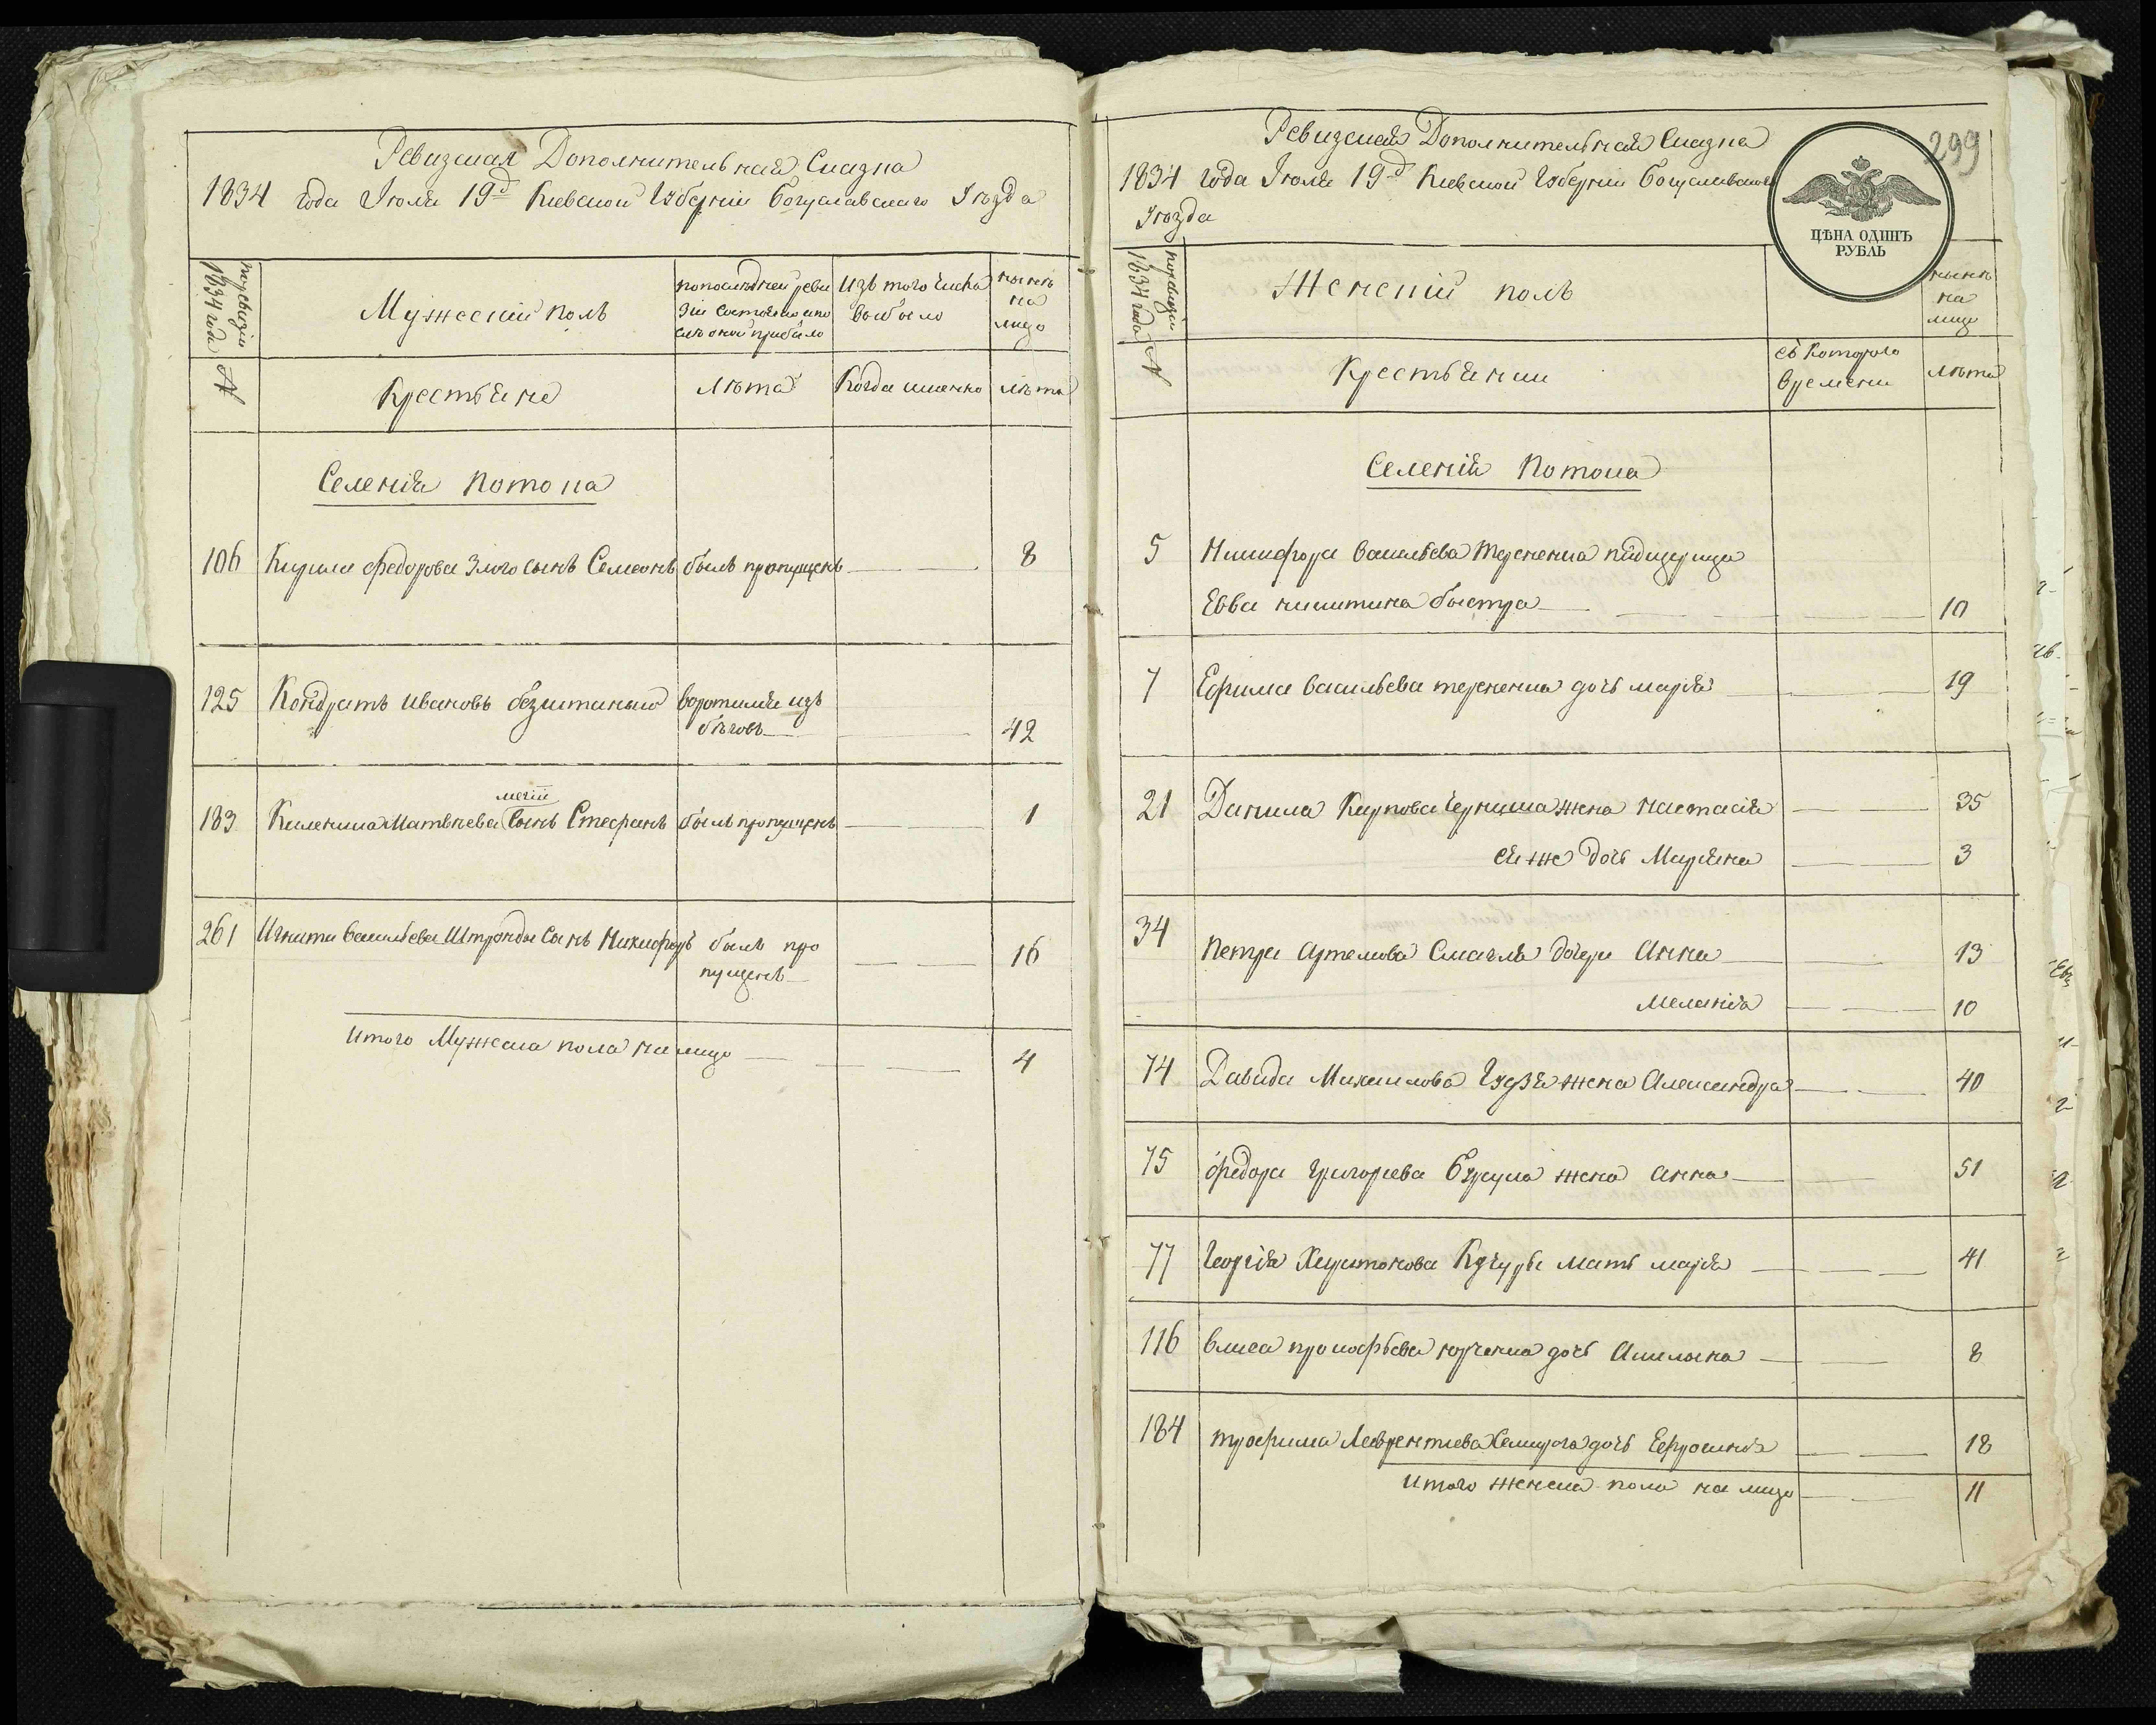 Ревизская Дополнительная Сказка
1834 года Июля 19д Киевской Губерніи Богуславскаго Уѣзда
по ревизіи 1834 года №
Мужеский полъ
по последней реви
зіи состояло и по
слѣ оной прибыло
Изъ того числа
выбыло
нынѣ
на
лицо
Крестьяне
Лѣта
Когда именно
лѣта
Селенія Потока
106 Кирила Федорова Злого сынъ Семеонъ былъ пропущенъ 8
125 Кондратъ Ивановъ воротился изъ
бѣговъ 42
меньшій
183 Матвѣева сынъ Стефанъ былъ пропущенъ 1
261 Игната Васильева Штронды сынъ Никифоръ былъ про
пущенъ 16
Итого Мужеска пола на лицо 4
Ревизская Дополнительная Сказка
299
1834 года Июля 19д Киевской Губерніи Богуславскаго
Уѣзда
ЦѢНА ОДИНЪ
РУБЛЬ
по ревизіи 1834 года №
Женскій полъ
нынѣ
на
лицо
Крестьянки
съ Которого
времени
лѣта
Селенія Потока
5 Никифора Васильева Терненка падщерица
Евва никитина быстра 10
7 Ефима Васильева терненка дочь марія 19
21 Данила Карпова Черниша жена настасія 35
ея же дочь Маряна 3
34 Петра Артемова дочери Анна 13
меланія 10
74 Давида Михаилова Гудзя жена Александра 40
75 Федора Григорева жена анна 51
77 Георгія Харитонова Кучуры мать марія 41
116 власа прокофьева дочь Акилына 8
184 трофима Лаврентиева дочь Ефросинія 18
Итого женска пола на лицо 11